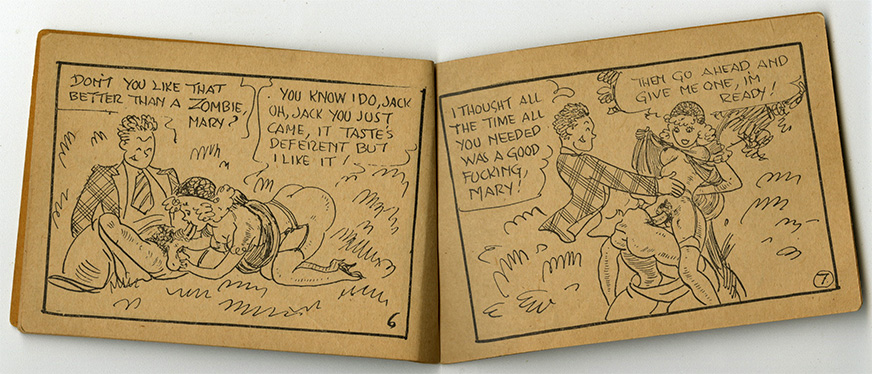 DON'T YOU LIKE THAT
BETTER THAN A ZOMBIE,
MARY?
YOU KNOW I DO, JACK
OH, JACK YOU JUST
CAME, IT TASTE'S
DEFERENT BUT
I LIKE IT!
6
I THOUGHT ALL
THE TIME ALL
YOU NEEDED
WAS A GOOD
FUCKING,
MARY!
THEN GO AHEAD AND
GIVE ME ONE, I'M
READY!
7